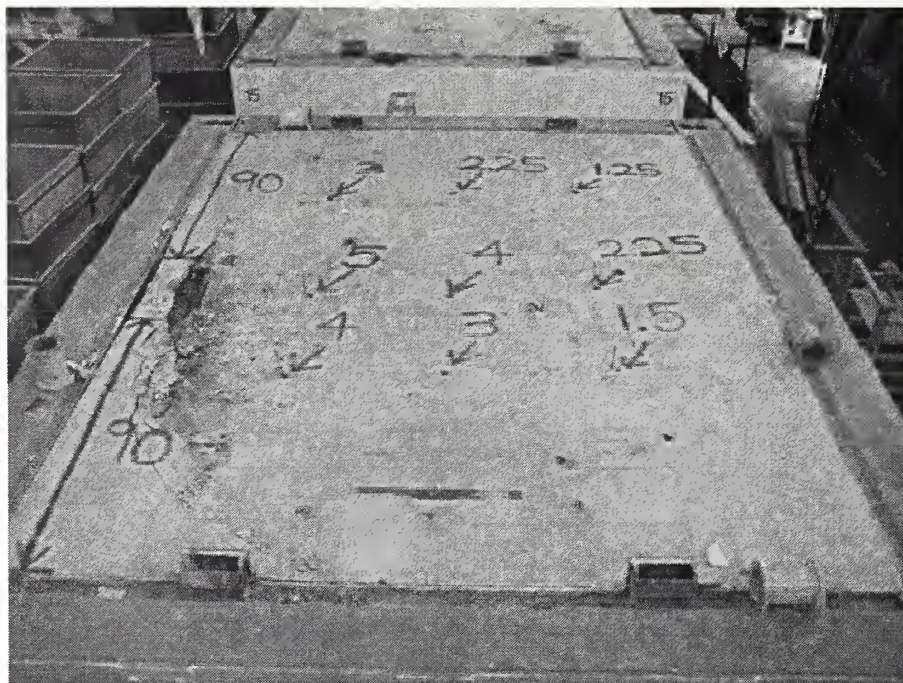 15 15
90 2 225 125
5 4 225
4 3 1.5
90